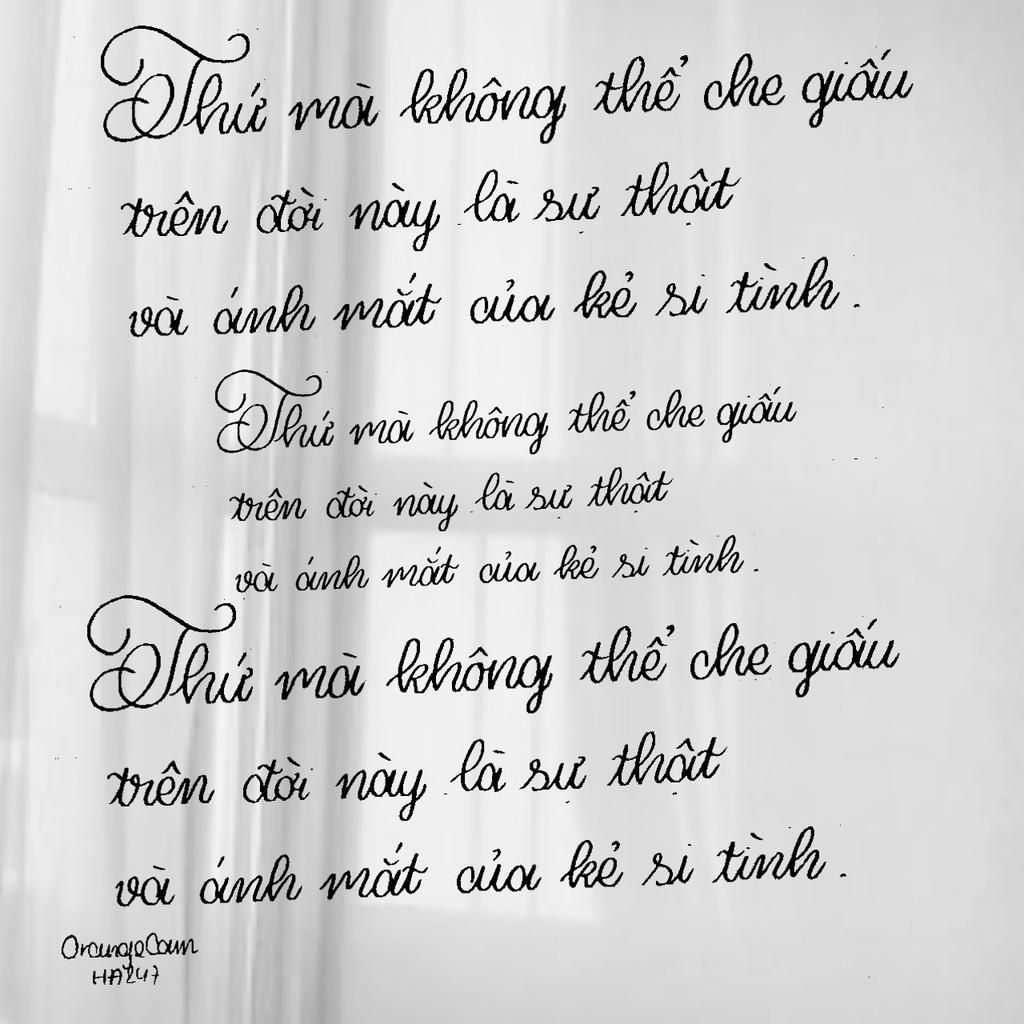 Thứ mà không thể che giấu
trên đời này là sự thật
và ánh mắt của kẻ si tình.
Thứ mà không thể che giấu
trên đời này là sự thật
và ánh mắt của kẻ si tình.
Thứ mà không thể che giấu
trên đời này là sự thật
và ánh mắt của kẻ si tình.
HAZ47